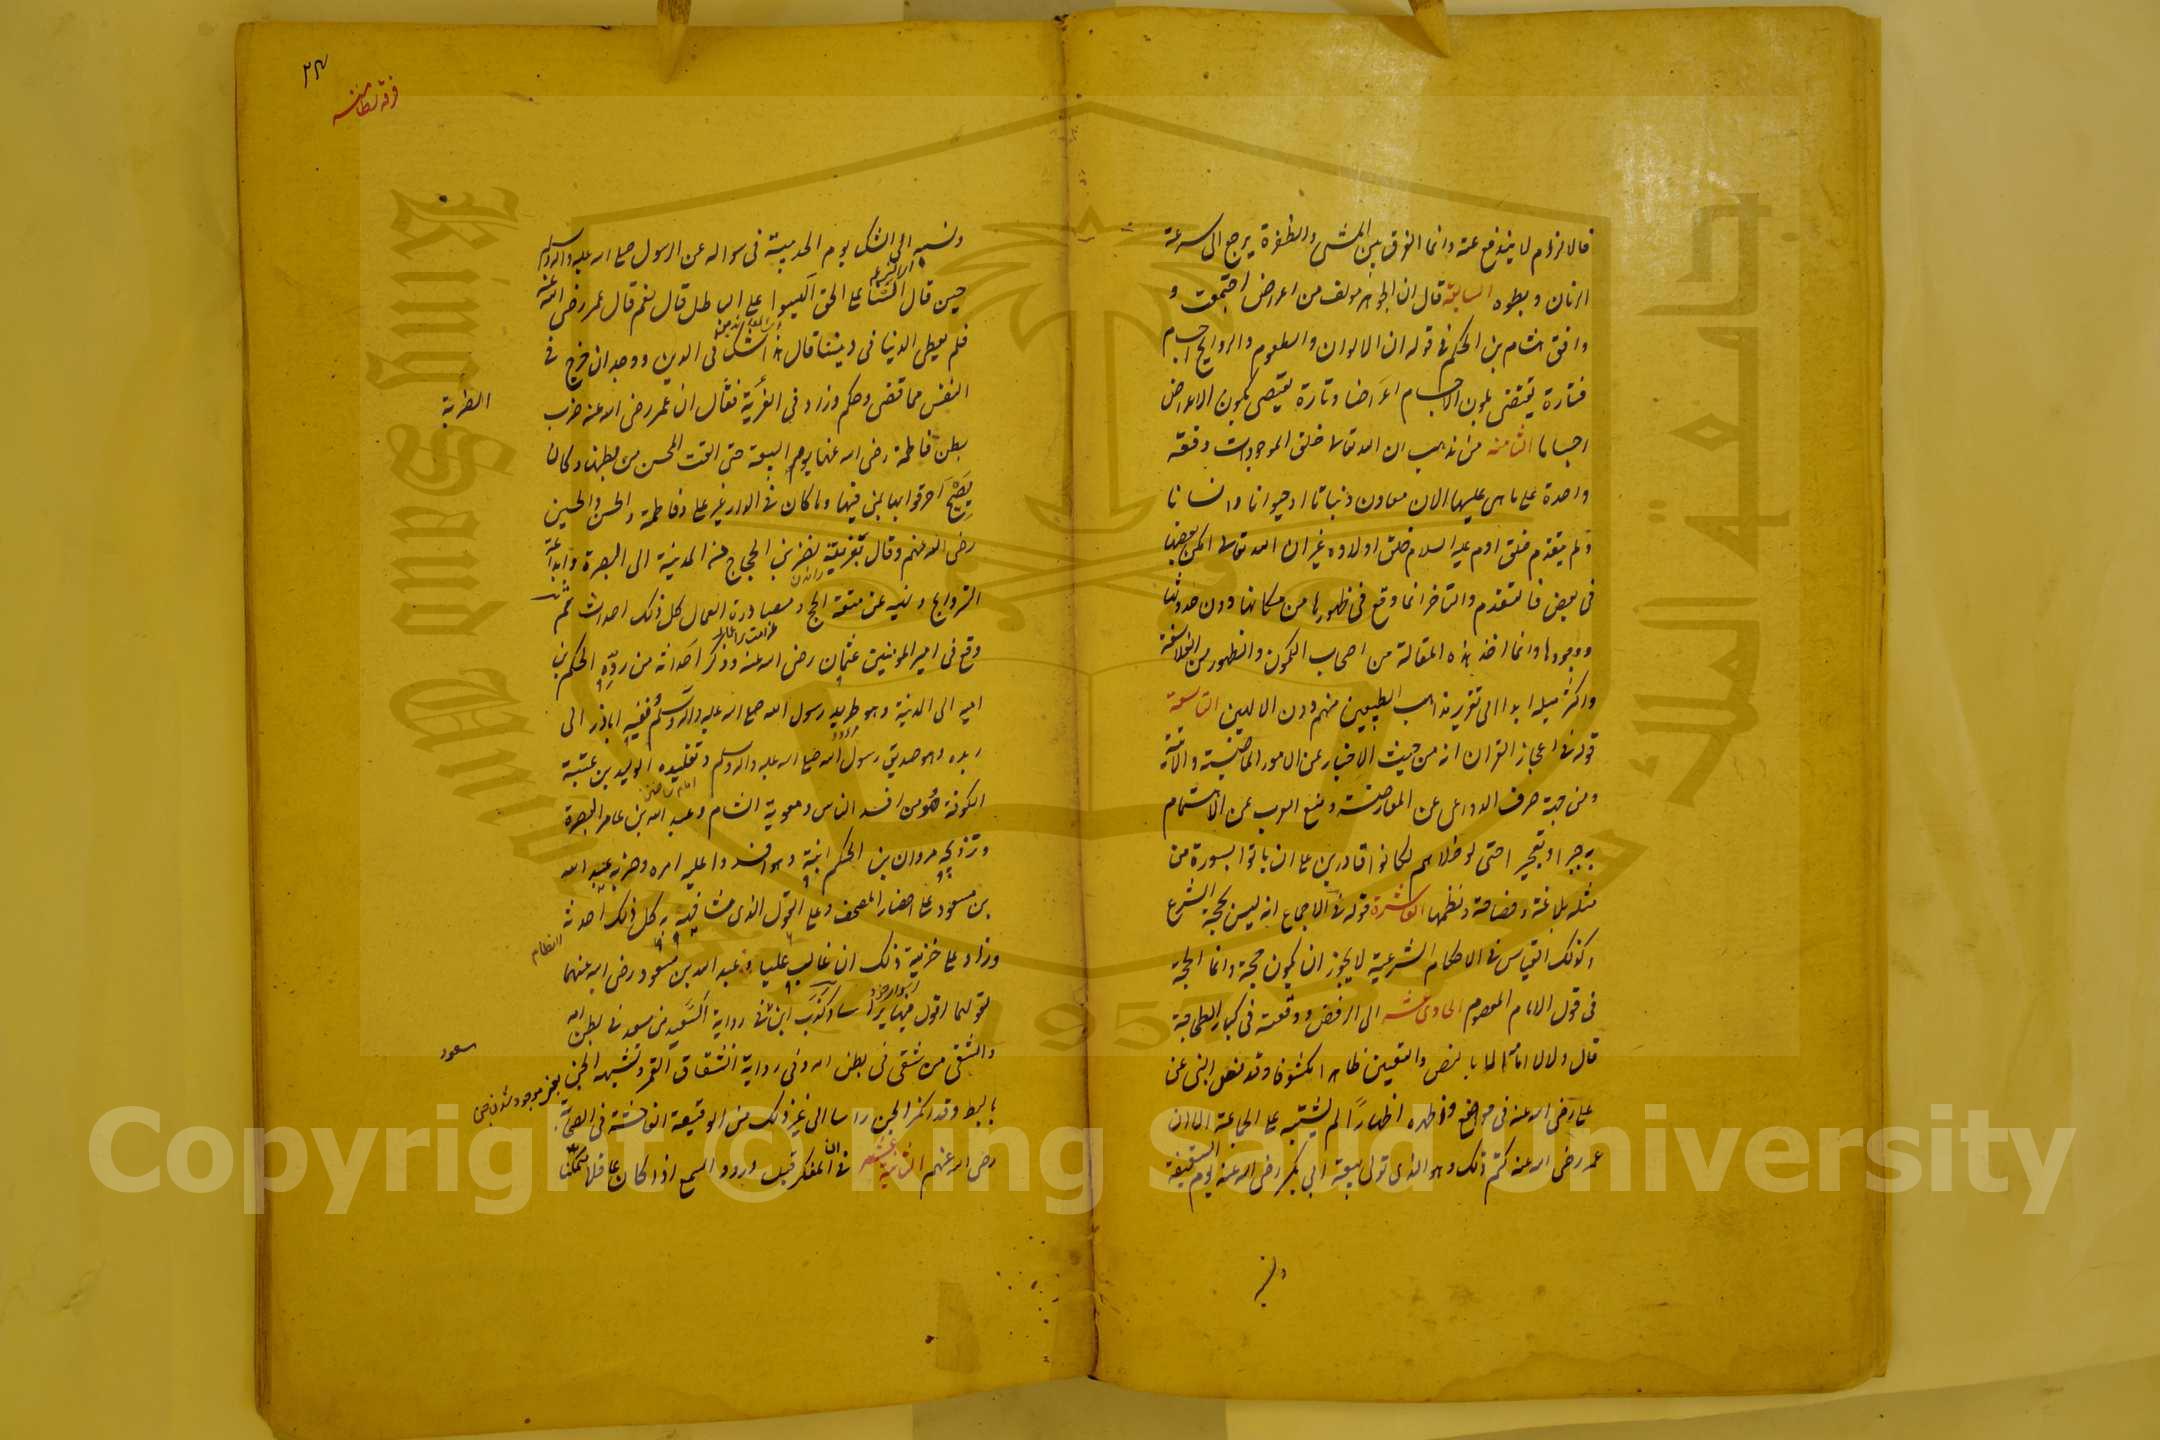 فالالزام لا يندفع عنه وانما الفرق بين المشى والطفرة يرجع الى سرعة
الزمان وبطوه السابعة قال ان الجواهر مولف من اعراض اجتمعت و
وافق هشام بن الحكم فى قوله ان الالوان والطعوم والروايح اجسام
فتارة يقضى بكون الاجسام اعراضا وتارة يقضى بكون الاعراض
اجساما الثامنة من مذهبه ان الله تعالى خلق الموجودات دفعة
واحدة على ما هى عليها الان معادن ونباتا وحيوانا وانسانا
ولم يتقدم خلق ادم عليه السلام خلق اولاده غير ان الله تعالى اكمن بعضها
فى بعض فالتقدم والتاخر انما وقع فى ظهورها من مكانها دون حدوثها
ووجودها وانما اخذ هذه المقالة من اصحاب الكمون والظهور من الفلاسفة
واكثر ميله ابدا الى تقرير مذاهب الطبيعين منهم دون الالهين التاسعة
قوله فى اعجاز القران انه من حيث الاخبار عن الامور الماضية والاتية
ومن جهة صرف الدواعى عن المعارضة ومنع العرب عن الاهتمام
به جبرا وتعجيزا حتى لو خلاهم لكانوا قادرين على ان ياتوا بسورة من
مثله بلاغة وفصاحة ونظما العاشرة قوله فى الاجماع انه ليس بحجة الشرع
وكذلك القياس فى الاحكام الشرعية لا يجوز ان يكون حجة وانما الحجة
فى قول الامام المعصوم الحادى عشر الى الرفض ووقعته فى كبار الصحابة
قال اولا لا امامة الا بالنص والتعيين ظاهرا مكشوفا وقد نص النبى عن
على رضى الله عنه فى مواضع واظهره اظهارا لم يشتبه على الجماعة الا ان
عمر رضى الله عنه كتم ذلك وهو الذى تولى بيعة ابى بكر رضى الله عنه يوم السقيفة
٢٣
فرقه نظاميه
ونسبه الى الشك يوم الحديبية فى سواله عن الرسول صلى الله عليه واله وسلم
حين قال السنا على الحق اليسوا على الباطل قال نعم قال عمر رضى الله عنه
فلم نعطى الدنيا فى ديننا قال هذا شك فى الدين ووجدان حرج فى
النفس مما قضى وحكم وزاد فى الفرية فقال ان عمر رضى الله عنه ضرب
بطن فاطمة رضى الله عنها يوم البيعة حتى القت المحسن من بطنها وكان
يصيح احرقوها بمن فيها وما كان فى الدار غير على وفاطمة والحسن والحسين
رضى الله عنهم وقال تغريبه نصر بن الحجاج من المدينة الى البصرة وابداعه
التراويح ونهيه عن متعة الحج ومصادرة العمال كل ذلك احداث ثم
وقع فى امير المومنين عثمان رضى الله عنه وذكر احداثه من رده الحكم بن
اميه الى المدينة وهو طريد رسول الله صلى الله عليه واله وسلم ونفيه اباذر الى
ربده وهو صديق رسول الله صلى الله عليه واله وسلم وتقليده الوليد بن عتبة
الكوفة وهو من افسد الناس ومعوية الشام وعبد الله بن عامر البصرة
وتزويجه مروان بن الحكم ابنته وهو افسدوا عليه امره وضربه عبد الله
بن مسعود على احضار المصحف وعلى القول الذى شافهه به كل ذلك احدثه
النظام
وزاد على خزيه ذلك ان عاب عليا وعبد الله بن مسعود رضى الله عنهما
لقولهما اقول فيها برايى وكذب ابن فى رواية السعيد من سعد فى بطن امه
مسعود
والشقى من شقى فى بطن امه وفى رواية انشقاق القمر وتشبيه الجن
بالبط وقد انكر الجن راسا الى غير ذلك من الوقيعة الفاحشة فى الصحابة
رضى الله عنهم الثانية عشر فى ان المفكر قبل ورود السمع اذا كان عاقلا متمكنا